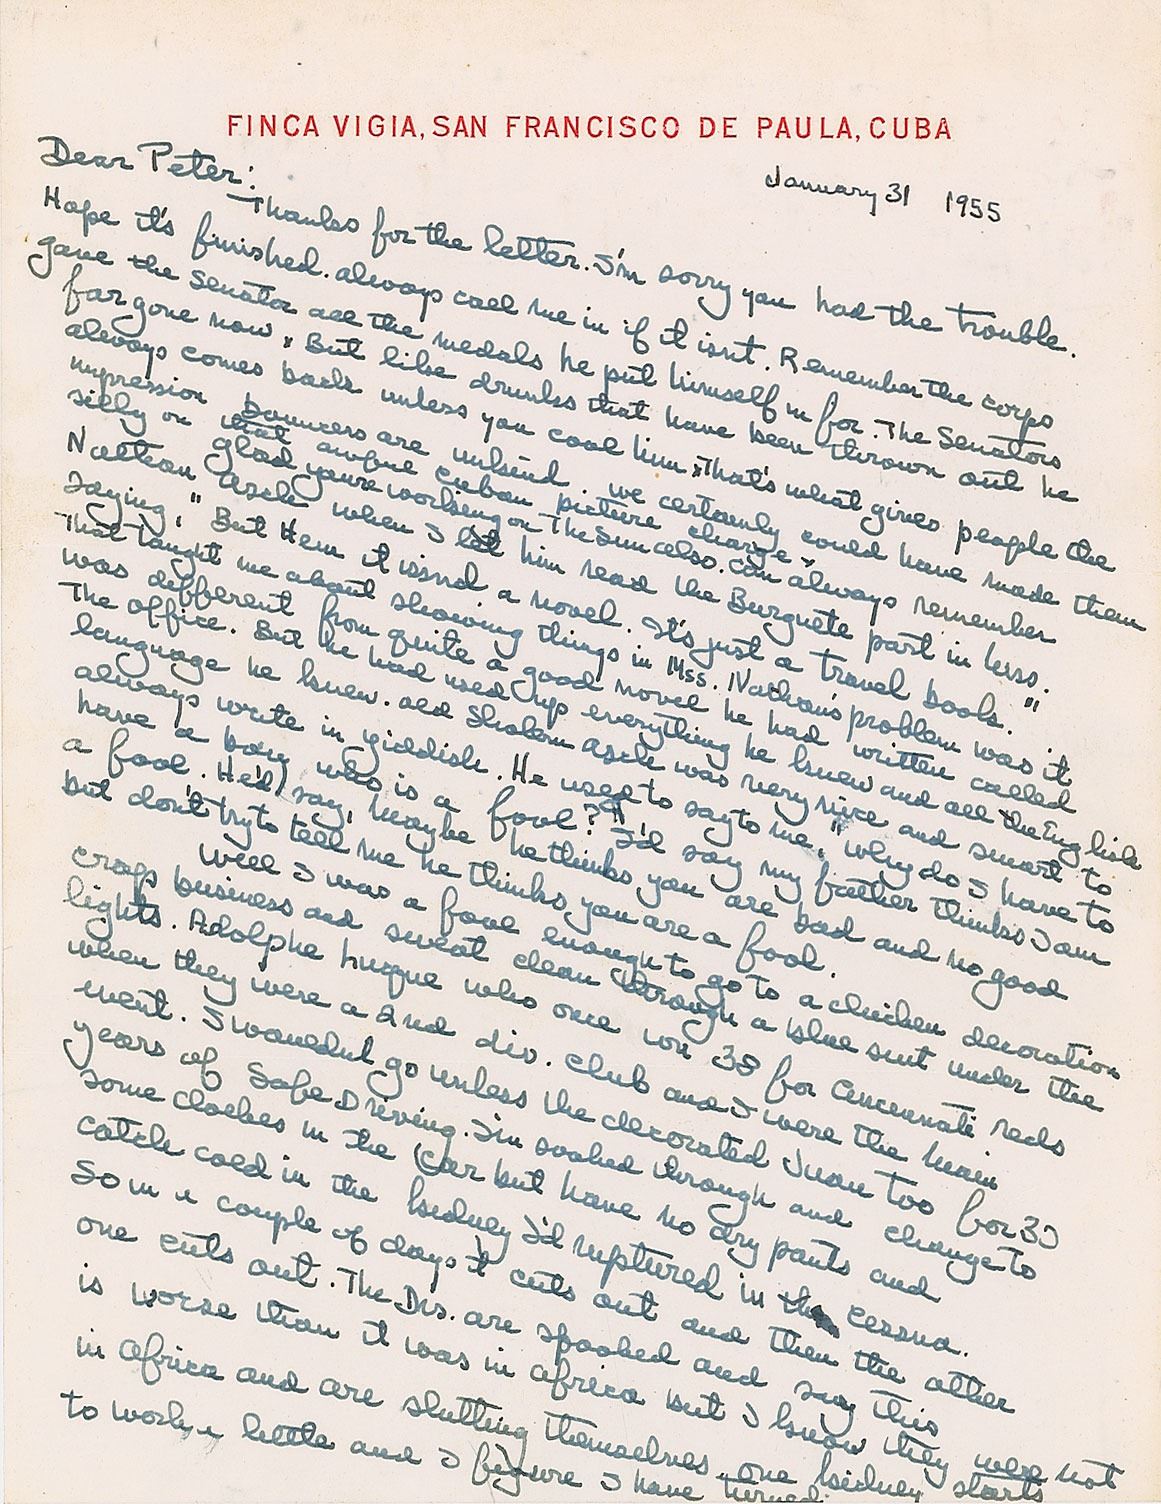 FINCA VIGIA, SAN FRANCISCO DE PAULA, CUBA
January 31 1955
Dear Peter:
Thanks for the letter. I'm sorry you had the trouble.
Hope it's finished. always call me in if it isn't. Remember the corps
gave the Senator all the medals he put himself in for. The Senators
far gone now. But like drunks that have been thrown out he
always comes back unless you cool him. That's what gives people the
impression bouncers are unkind. we certainly could have made them
silly on that Cuban picture charge.
glad you're working on The Sun also. Can always remember
Nathan Asch when I let him read the Burguete part in Mss.
saying, "But Hem it isn't a novel. It's just a travel book."
That taught me about showing things in Mss. Nathan's problem was it
was different from quite a good novel he had written called
The office. But he had used up everything he knew and all the English
language he knew. old Sholem Asch was very nice and smart to
always write in yiddish. He used to say to me, "why do I have to
have a boy who is a fool?" I'd say my father thinks I am
a fool. He'd say, maybe he thinks you are bad and no good
but don't try to tell me he thinks you are a fool.
Well I was a fool enough to go to a chicken decoration
crap business and sweat clean through a blue suit under the
lights. Adolphe Luque who once won 38 for Cincennati reds
when they were a 2nd div. club and I were the main
event. I wouldn't go unless they decorated Juan too for 30
years of Safe Driving. I'm soaked through and change to
some clothes in the car but have no dry pants and
catch cold in the kidney I'd ruptured in the Cessna.
So in a couple of days it cuts out and then the other
one cuts out. The Drs. are spooked and say this
is worse than it was in africa but I know they were not
in africa and are shitting themselves. one kidney starts
to work a little and I figure I have turned